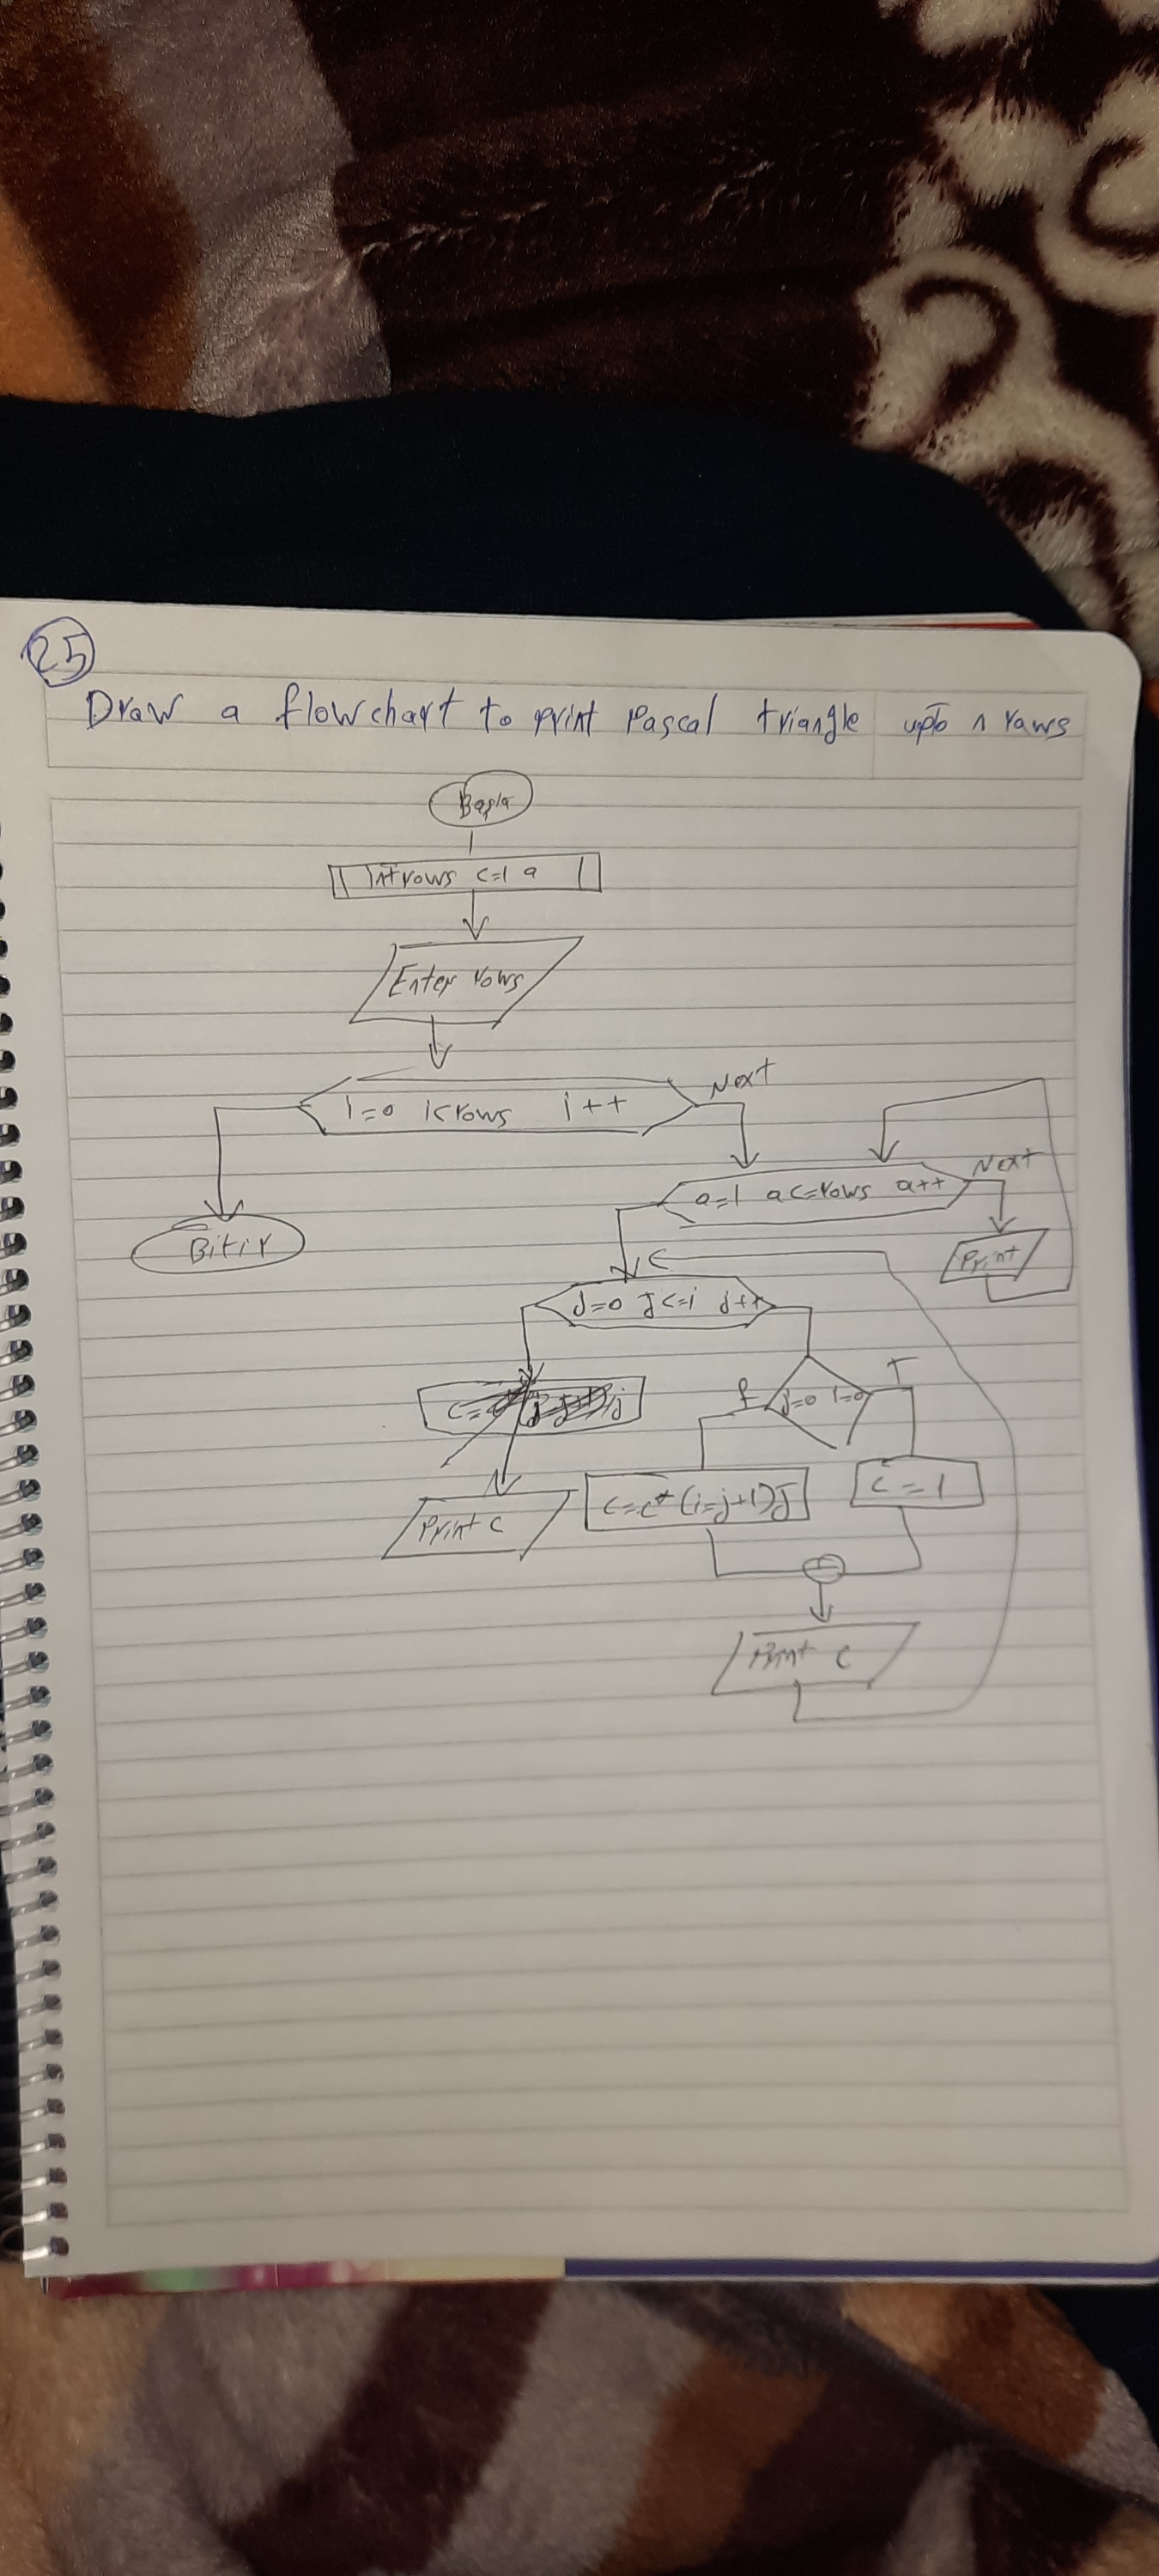 25
Draw a flowchart to print Pascal triangle upto n raws
Başla
Int rows c=1 a
Enter rows
i=0 i<rows i++
Next
a=1 a<=rows a++
Next
Bitir
Print
j=0 j<=i j++
f
j=0 i=0
T
Print c
c=c*(i=j+1)J
c=1
Print c